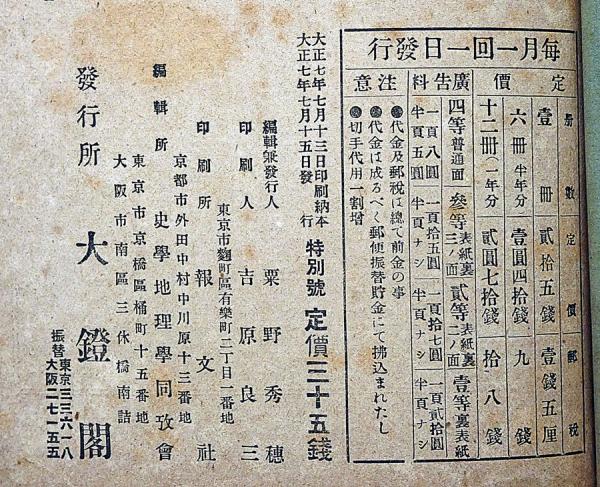 毎月一回一日發行
定價
冊數 定價 郵税
壹冊 貳拾五錢 壹錢五厘
六冊 半年分 壹圓四拾錢 九錢
十二冊(一年分) 貳圓七拾錢 拾八錢
廣告料
四等普通面 參等表紙裏三ノ面 貳等表紙裏二ノ面 壹等裏表紙
一頁八圓 一頁拾五圓 一頁拾七圓 一頁貳拾圓
半頁五圓 半頁ナシ 半頁ナシ 半頁ナシ
注意
●代金及郵税は總て前金の事
●代金は成るべく郵便振替貯金にて拂込まれたし
●切手代用一割增
大正七年七月十三日印刷納本
大正七年七月十五日發行
特別號 定價三十五錢
編輯兼發行人 粟野秀穗
印刷人 吉原良三
東京市麴町區有樂町二丁目一番地
印刷所 報文社
京都市外田中村中川原十三番地
編輯所 史學地理學同攷會
東京市京橋區桶町十五番地
大阪市南區三休橋南詰
發行所 大鐙閣
振替 東京三三六一八
大阪二七一五五